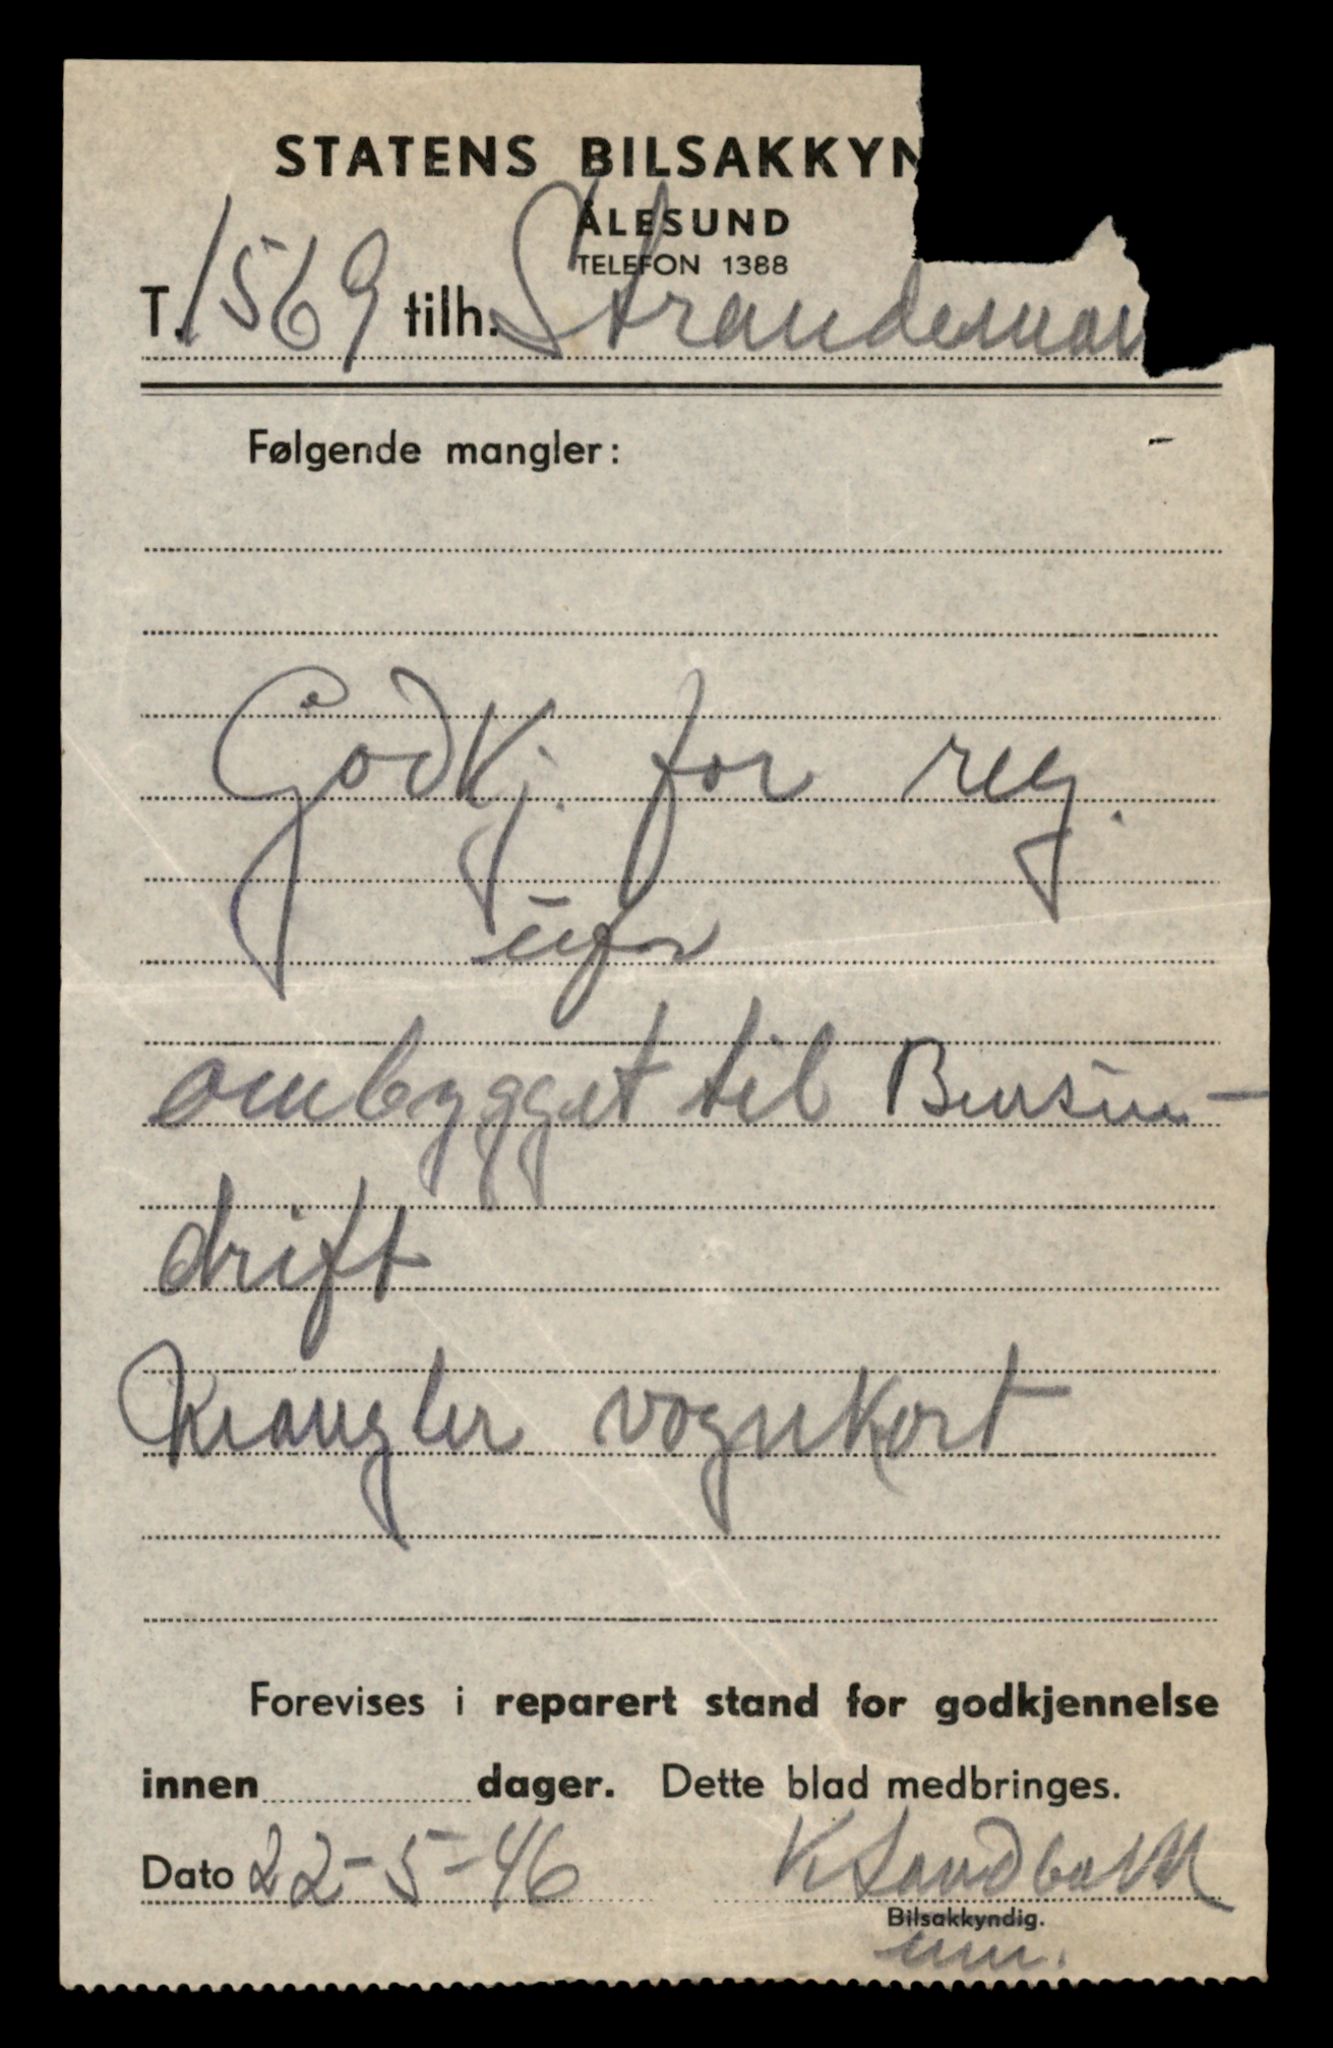 STATENS BILSAKKYN
ÅLESUND
TELEFON 1388
T. 1569 tilh. Strandeman
Følgende mangler:
Godkj. for reg.
ufør
ombygget til Bensin-
drift
Mangler vognkort
Forevises i reparert stand for godkjennelse
innen dager. Dette blad medbringes.
Dato 22-5-46 K Sandbakk
Bilsakkyndig.